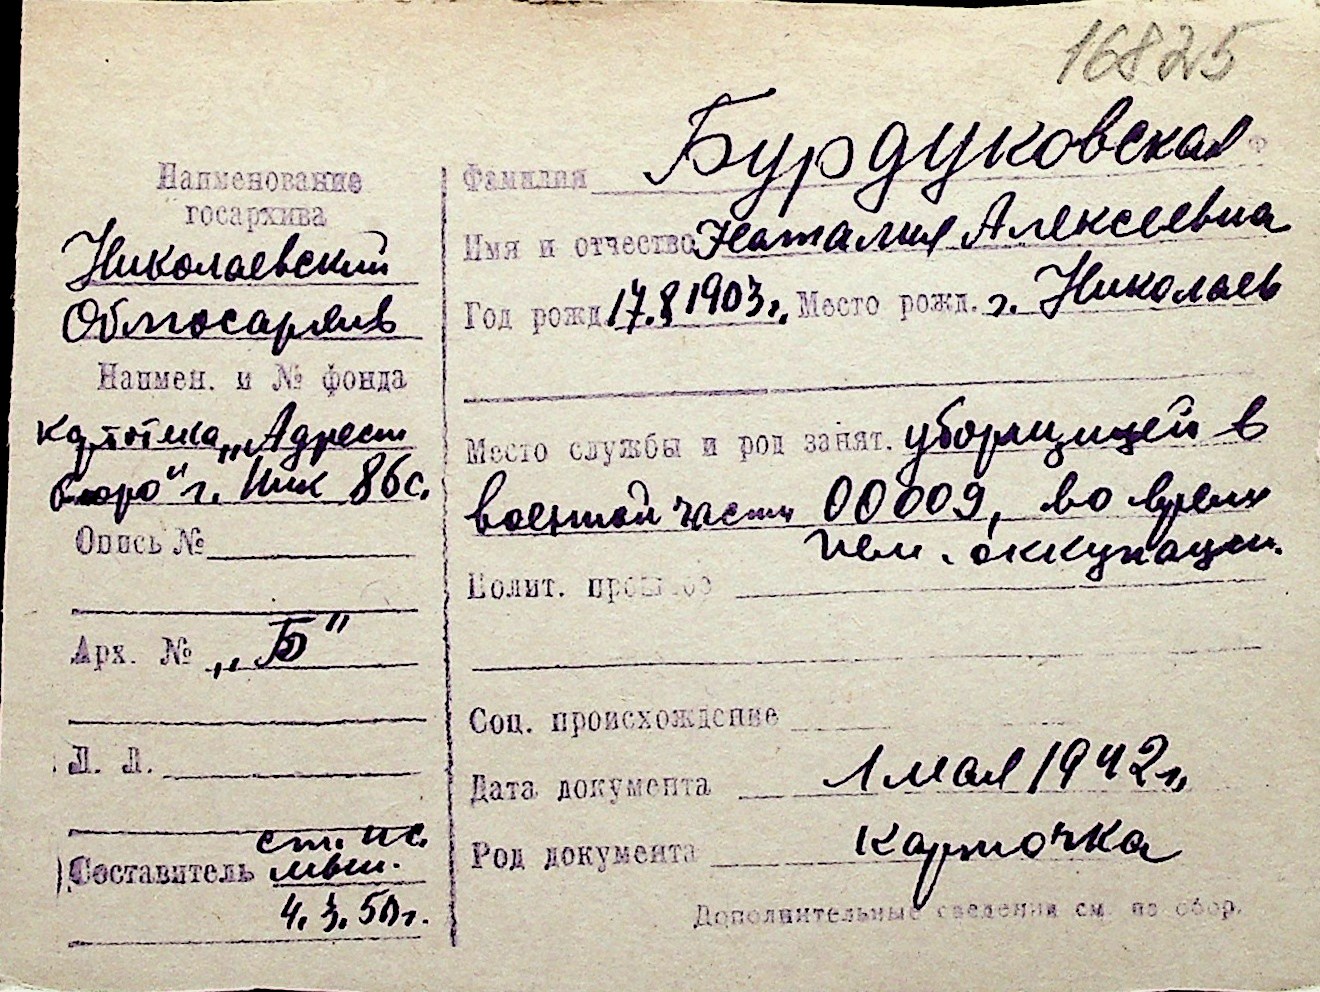 16825
Наименование
госархива
Николаевский
Облгосархив
Наимен. и № фонда
картотека „Адресн
бюро" г. Ник 86с.
Опись №
Арх. № „Б"
Л. Л.
Составитель ст. нс.
4.3.50г.
Фамилия Бурдуковская
Имя и отчество Наталия Алексеевна
Год рожд. 17.8 1903г. Место рожд. г. Николаев
Место службы и род занят. уборщицей в
военной части 00009, во время
нем. оккупации.
Полит. прошлое
Соц. происхождение
Дата документа 1 мая 1942г.
Род документа карточка
Дополнительные сведения см. на обор.